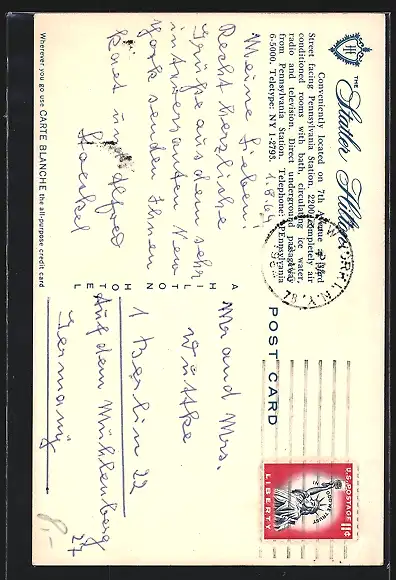 THE
Statler Hilton
Conveniently located on 7th Avenue and 33rd
Street facing Pennsylvania Station. 2200 completely air
conditioned rooms with bath, circulating ice water,
radio and television. Direct underground passageway
from Pennsylvania Station. Telephone: PEnnsylvania
6-5000. Teletype: NY 1-2793.
1.8.64
Meine Lieben!
Recht herzliche
Grüße aus dem sehr
interessanten New
York senden Ihnen
Kaet und Alfred
Stoeckel
Wherever you go use CARTE BLANCHE the all-purpose credit card
A HILTON HOTEL
POST CARD
NEW YORK, N.Y.
U.S. POSTAGE
11¢
IN GOD WE TRUST
LIBERTY
Mr and Mrs.
Wuttke
1 Berlin 22
Auf dem Mühlenberg
27
Germany
8,-